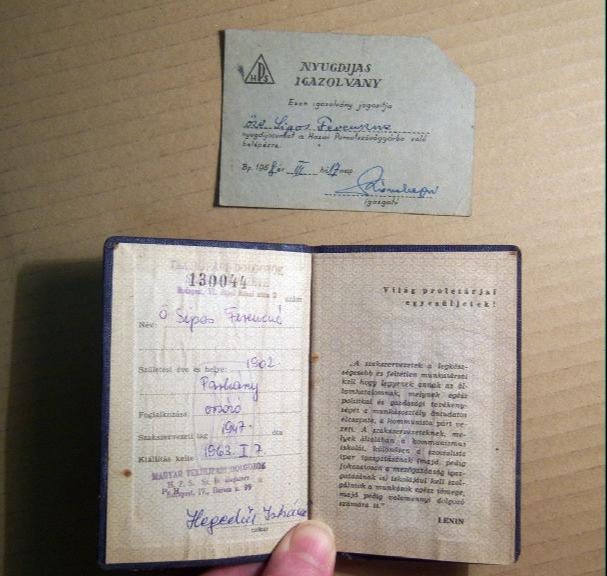 HPS
NYUGDIJAS
IGAZOLVÁNY
Ezen igazolvány jogosítja
özv. Sipos Ferencné
nyugdíjasunkat a Hazai Pamutszövőgyárba való
belépésre.
Bp. 196 év VI hó 17 nap
igazgató
DOLGOZÓK
130044
szám
Név: Ö Sipos Ferencné
Születési éve és helye: 1902
Párkány
Foglalkozása: orsózó
Szakszervezeti tag 1947. óta
Kiállítás kelte 1963. I 7
MAGYAR TEXTILIPARI DOLGOZÓK
H. P. S. Sz. B. alapszerv
Budapest, IV.,
Hegedűs Istvánné
titkár
Világ proletárjai
egyesüljetek!
„A szakszervezetek a legközel-
ségesebb és feltétlen munkatársai
kell hogy legyenek annak az ál-
lamhatalomnak, melynek egész
politikai és gazdasági tevékeny-
ségét a munkásosztály öntudatos
élcsapata, a kommunista párt ve-
zeti. A szakszervezeteknek, me-
lyek általában a kommunizmus
iskolái, különösen a szocialista
ipar igazgatásának (majd pedig
fokozatosan a mezőgazdaság igaz-
gatásának is) iskolájául kell szol-
gálniok a munkások egész tömege,
majd pedig valamennyi dolgozó
számára is."
LENIN